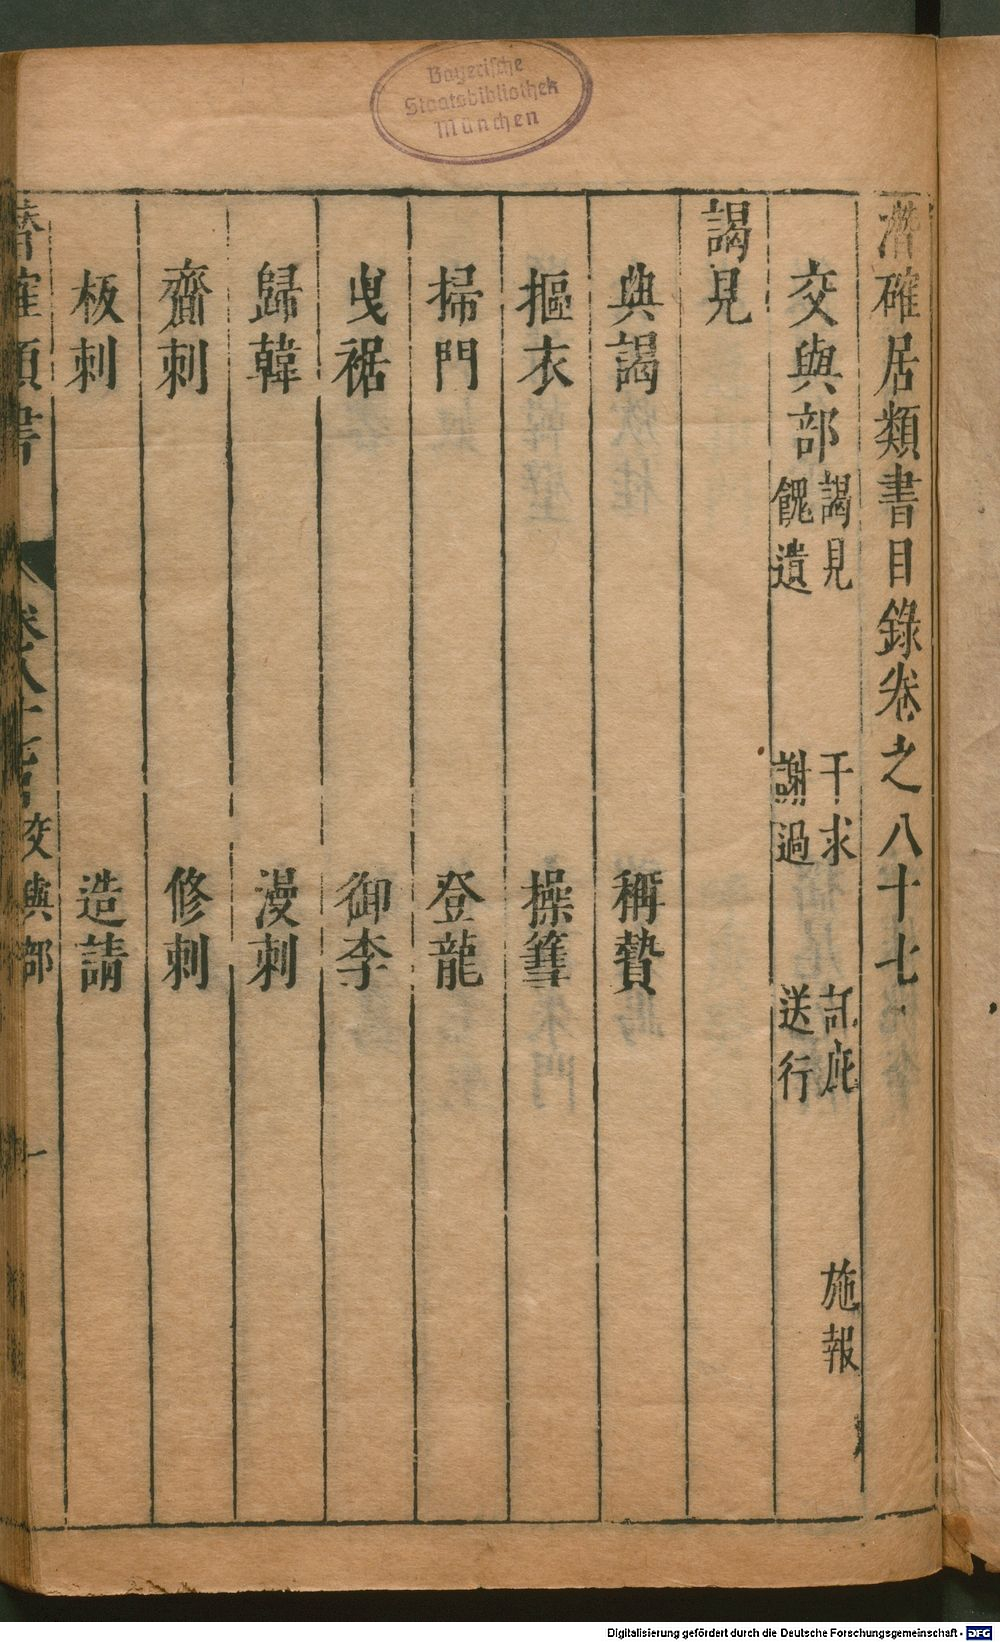 Bayerische
Staatsbibliothek
München
潛確居類書目錄卷之八十七
交與部 謁見 干求 託庇 施報
餽遺 謝過 送行
謁見
典謁 稱贄
摳衣 操篲
掃門 登龍
曳裾 御李
歸韓 漫刺
齋刺 修刺
板刺 造請
潛確類書 卷八十七 交與部 一
Digitalisierung gefördert durch die Deutsche Forschungsgemeinschaft - DFG